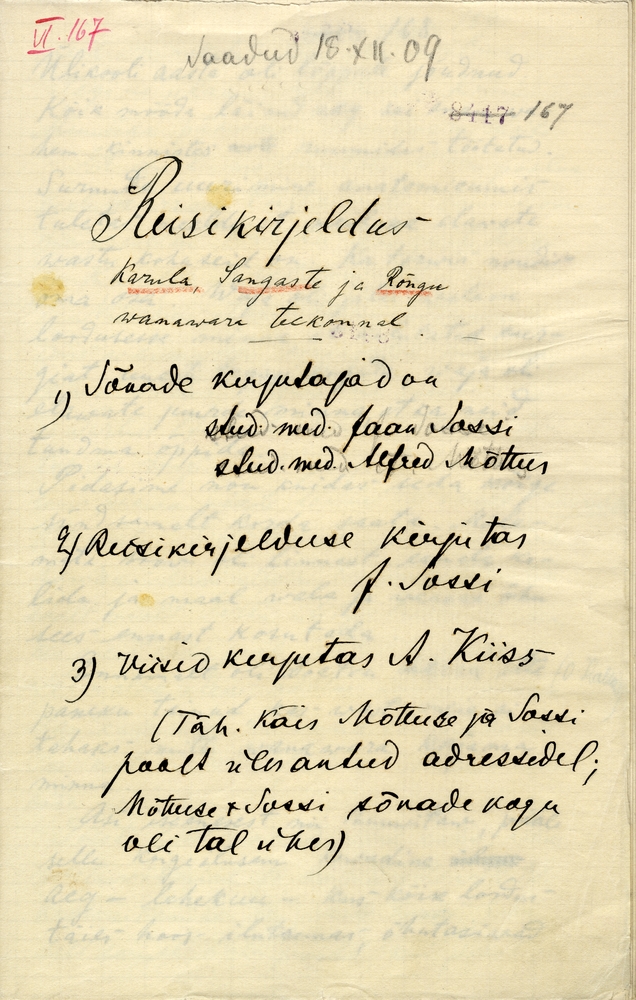 VI. 167
Saadud 18.XII.09
8447 167
Reisikirjeldus
Karula, Sangaste ja Rõngu
wanawara teekonnal
1) Sõnade kirjutajad on
stud. med. Jaan Sossi
stud. med. Alfred Mõttus
2) Reisikirjelduse kirjutas
J. Sossi
3) Viisid kirjutas A. Kiiss
(Täh. Käis Mõttuse ja Sossi
poolt ülesantud adressidel;
Mõttuse & Sossi sõnade kogu
oli tal ühes)